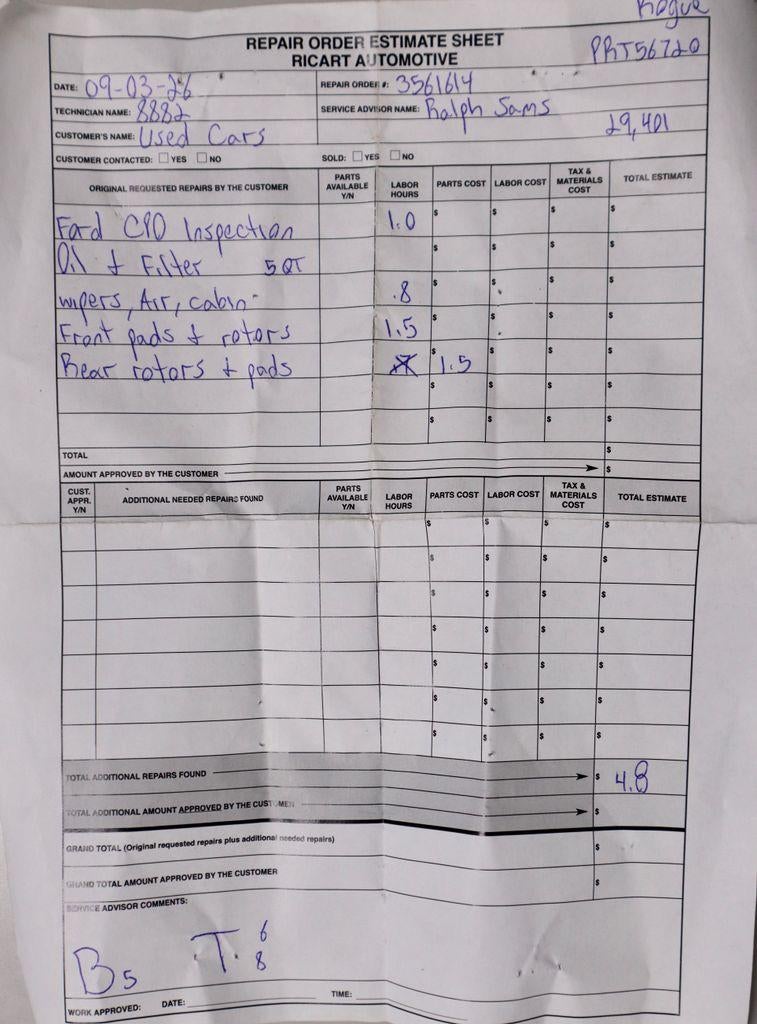 Rogue
REPAIR ORDER ESTIMATE SHEET
RICART AUTOMOTIVE
PRT56720
DATE: 09-03-26
REPAIR ORDER #: 3561614
TECHNICIAN NAME: 8882
SERVICE ADVISOR NAME: Ralph Sams
29,401
CUSTOMER'S NAME: Used Cars
CUSTOMER CONTACTED: YES NO
SOLD: YES NO
ORIGINAL REQUESTED REPAIRS BY THE CUSTOMER PARTS AVAILABLE Y/N LABOR HOURS PARTS COST LABOR COST TAX & MATERIALS COST TOTAL ESTIMATE
Ford CPO Inspection 1.0 $ $ $ $
Oil & Filter 5 QT $ $ $ $
wipers, Air, cabin .8 $ $ $ $
Front pads & rotors 1.5 $ $ $ $
Rear rotors & pads $ 1.5 $ $ $
$ $ $ $
$ $ $ $
TOTAL $
AMOUNT APPROVED BY THE CUSTOMER $
CUST. APPR. Y/N ADDITIONAL NEEDED REPAIRS FOUND PARTS AVAILABLE Y/N LABOR HOURS PARTS COST LABOR COST TAX & MATERIALS COST TOTAL ESTIMATE
$ $ $ $
$ $ $ $
$ $ $ $
$ $ $ $
$ $ $ $
$ $ $ $
$ $ $ $
TOTAL ADDITIONAL REPAIRS FOUND $ 4.8
TOTAL ADDITIONAL AMOUNT APPROVED BY THE CUSTOMER $
GRAND TOTAL (Original requested repairs plus additional needed repairs) $
GRAND TOTAL AMOUNT APPROVED BY THE CUSTOMER $
SERVICE ADVISOR COMMENTS:
B5 T. 6
8
WORK APPROVED: DATE: TIME: